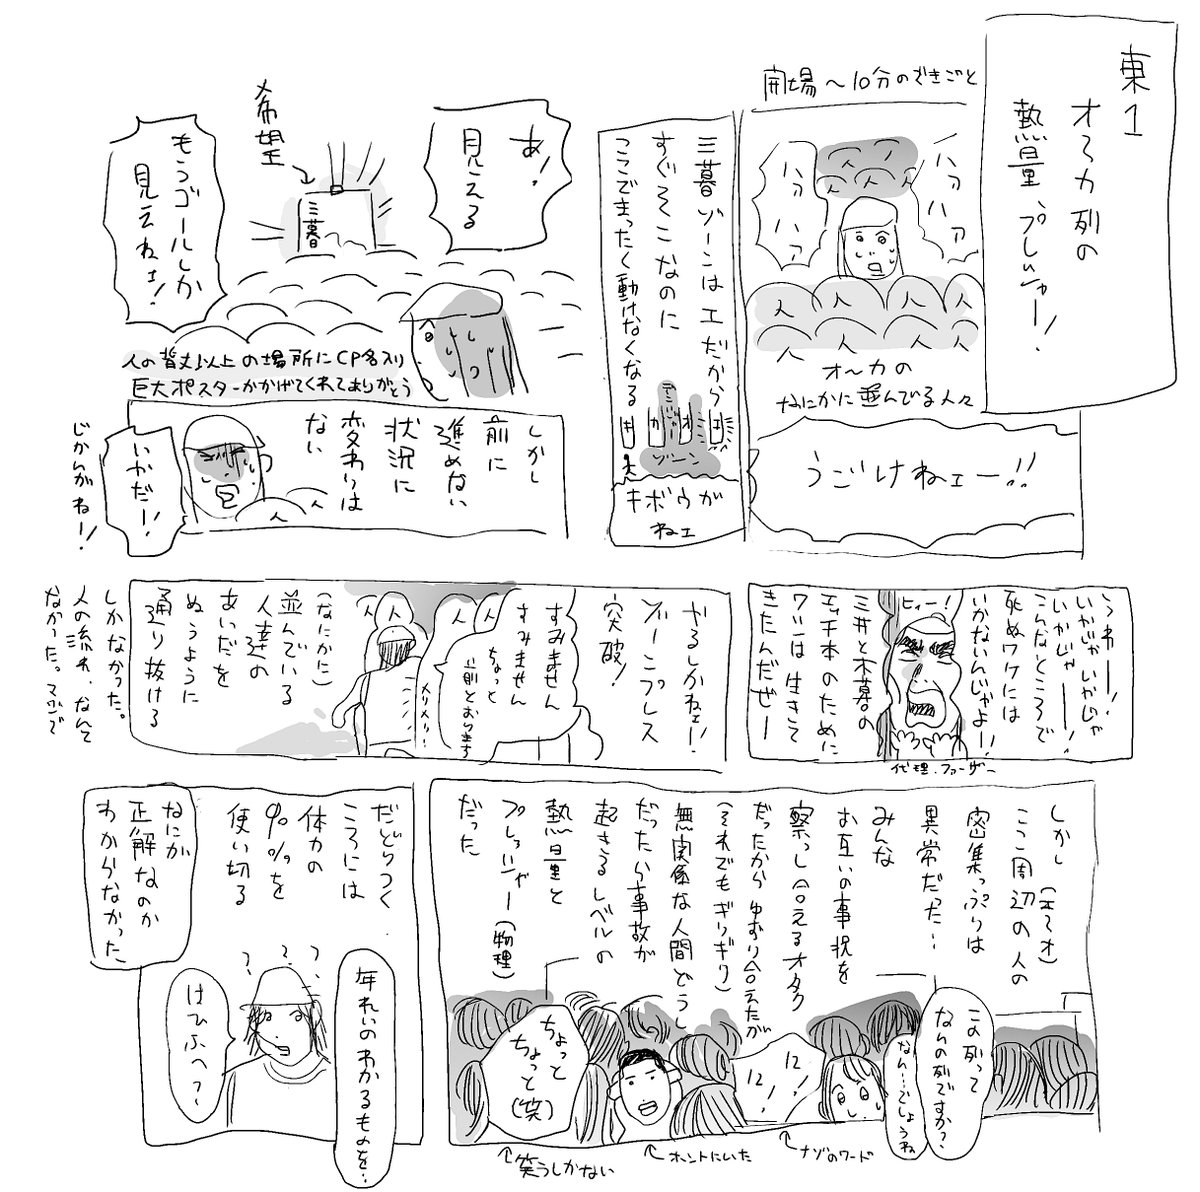 東1
オ〜カ列の
熱量、プレッシャー!
開場〜10分のできごと
ハァ
ハァ
ハァ
ハァ
人人
人人人
人人人人
人人人人
オ〜カの
なにかに並んでる人々
うごけねェー!!
三暮ゾーンはエだから
すぐそこなのに
ここでまったく動けなくなる
エ
オ
カ
キ
ゾーン
キボウが
ねェ
あ!
見える
希望
三暮
もうゴールしか
見えねェ!
人の背丈以上の場所にCP名入り
巨大ポスターかかげてくれてありがとう
しかし
前に
進めない
状況に
変わりは
ない
人人
いかだー!
じかんがねー!
うわー!
いやじゃいやじゃ
いやじゃーー!
こんなところで
死ぬワケには
いかないんじゃよー!
ヒィー!
三井と木暮の
エッチ本のために
ワシは生きて
きたんだぜー
代理・ファーザー
やるしかねェ!
ゾーンプレス
突破!
すみません
すみません
ちょっと
前とおります
メリメリ!
人人人人
(なにかに)
並んでいる
人達の
あいだを
ぬうように
通り抜ける
しかなかった。
人の流れ、なんて
なかった。マジで
しかし(エ〜オ)
ここ周辺の人の
密集っぷりは
異常だった…
みんな
お互いの事況を
察し合えるオタク
だったからゆずり合えたが
(それでもギリギリ)
無関係な人間どうし
だったら事故が
起きるレベルの
熱量と
プレッシャー(物理)
だった
この列って
なんの列ですか?
なん…でしょうね
12!
12!
ちょっと
ちょっと
(笑)
ナゾのワード
ホントにいた
笑うしかない
だどりつく
ころには
体力の
90%を
使い切る
なにが
正解なのか
わからなかった
???
年れいのわかるものを…
けひふへ?